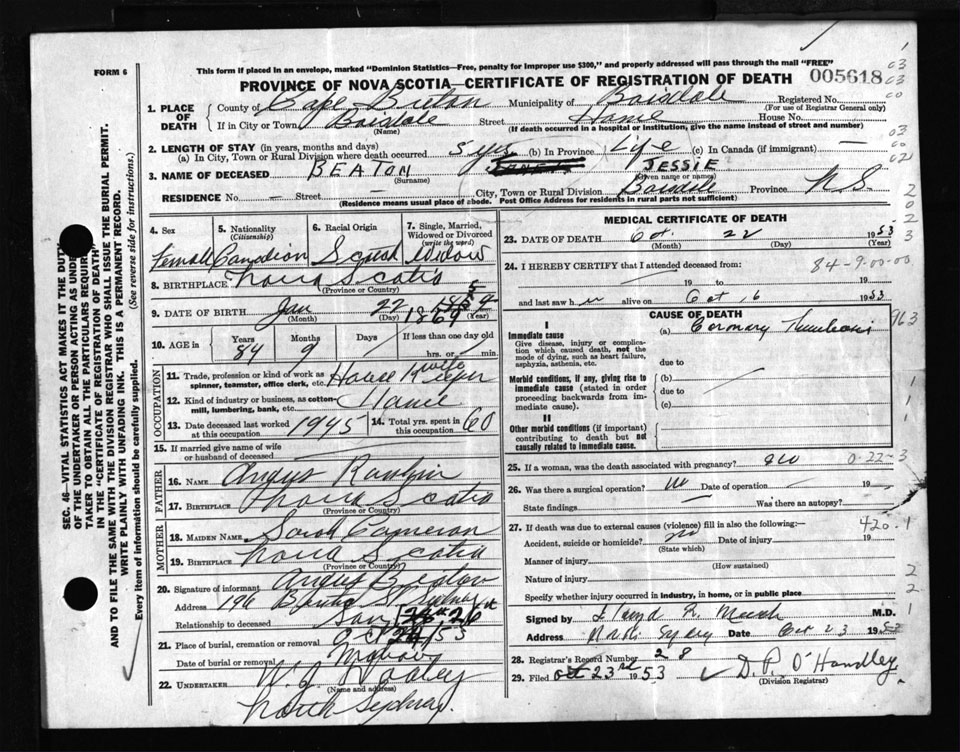 FORM 6
This form if placed in an envelope, marked "Dominion Statistics—Free, penalty for improper use $300," and properly addressed will pass through the mail "FREE"
PROVINCE OF NOVA SCOTIA—CERTIFICATE OF REGISTRATION OF DEATH 005618
1. PLACE OF DEATH County of Cape Breton Municipality of Boisdale Registered No.
(For use of Registrar General only)
If in City or Town Boisdale Street Home House No.
(Name) (If death occurred in a hospital or institution, give the name instead of street and number)
2. LENGTH OF STAY (in years, months and days)
(a) In City, Town or Rural Division where death occurred 5 yrs (b) In Province Life (c) In Canada (if immigrant) —
3. NAME OF DECEASED BEATON JESSIE
(Surname) (Given name or names)
RESIDENCE No. — Street — City, Town or Rural Division Boisdale Province N.S.
(Residence means usual place of abode. Post Office Address for residents in rural parts not sufficient)
4. Sex 5. Nationality (Citizenship) 6. Racial Origin 7. Single, Married, Widowed or Divorced (write the word)
Female Canadian Scotch Widow
8. BIRTHPLACE Nova Scotia
(Province or Country)
9. DATE OF BIRTH Jan 22 1869
(Month) (Day) (Year)
10. AGE in Years Months Days If less than one day old
84 9 hrs. or min.
OCCUPATION
11. Trade, profession or kind of work as spinner, teamster, office clerk, etc. House wife Keeper
12. Kind of industry or business, as cotton-mill, lumbering, bank, etc. Home
13. Date deceased last worked at this occupation 1945 14. Total yrs. spent in this occupation 60
15. If married give name of wife or husband of deceased
FATHER
16. NAME Angus Rankin
17. BIRTHPLACE Nova Scotia
(Province or Country)
MOTHER
18. MAIDEN NAME Sarah Cameron
19. BIRTHPLACE Nova Scotia
(Province or Country)
20. Signature of informant Angus Beaton
Address 196 St Sydney
Relationship to deceased Son
21. Place of burial, cremation or removal
Date of burial or removal Oct 24/53
22. UNDERTAKER W. J. Dooley
(Name and address)
North Sydney
MEDICAL CERTIFICATE OF DEATH
23. DATE OF DEATH Oct. 22 1953
(Month) (Day) (Year)
24. I HEREBY CERTIFY that I attended deceased from: 84-9-00-00
19 to 19
and last saw h er alive on Oct 16 1953
CAUSE OF DEATH
I
Immediate cause
Give disease, injury or complication which caused death, not the mode of dying, such as heart failure, asphyxia, asthenia, etc.
(a) Coronary Thrombosis
due to
Morbid conditions, if any, giving rise to immediate cause (stated in order proceeding backwards from immediate cause).
(b)
due to
(c)
II
Other morbid conditions (if important) contributing to death but not causally related to immediate cause.
25. If a woman, was the death associated with pregnancy? no 0-22-3
26. Was there a surgical operation? no Date of operation — 19 —
State findings — Was there an autopsy? —
27. If death was due to external causes (violence) fill in also the following:— 420.1
Accident, suicide or homicide? no Date of injury 19
(State which)
Manner of injury
(How sustained)
Nature of injury
Specify whether injury occurred in industry, in home, or in public place
Signed by M.D.
Address North Sydney Date Oct 23 1953
28. Registrar's Record Number 28
29. Filed Oct 23rd 1953 D. P. O'Handley
(Division Registrar)
SEC. 46—VITAL STATISTICS ACT MAKES IT THE DUTY
OF THE UNDERTAKER OR PERSON ACTING AS UNDERTAKER TO OBTAIN ALL THE PARTICULARS REQUIRED
IN THE "CERTIFICATE OF REGISTRATION OF DEATH"
AND TO FILE THE SAME WITH THE DIVISION REGISTRAR WHO SHALL ISSUE THE BURIAL PERMIT.
WRITE PLAINLY WITH UNFADING INK. THIS IS A PERMANENT RECORD.
Every item of information should be carefully supplied. (See reverse side for instructions.)